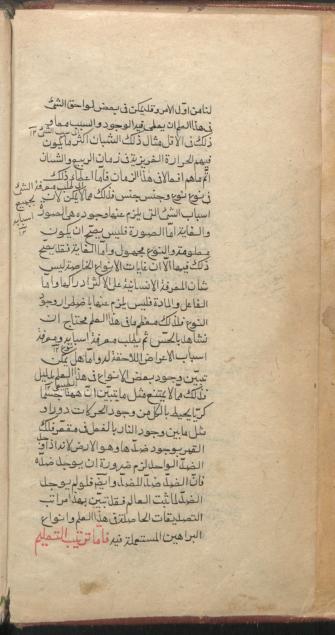 لنا من اول الامر وقد يمكن فى بعض لواحق الشئ
فى هذا العلم ان يعطى فيه الوجود والسبب معا و
ذلك فى الاقل مثال ذلك الشبان اكثر ما يكون
فيهم الحرارة الغريزية فى زمان الربيع والشبان
نوع نوع وجنس جنس فذلك مما لا يمكن لان
اسباب الشئ التى يلزم عنها وجوده هى الصورة
والغاية اما الصورة فليس يصح ان يكون
معلومة والنوع مجهول واما الغاية فقد يصح
ذلك فيها الا ان غايات الانواع الخاصة ليس
شأن المعرفة الانسانية على الاكثر ادراكها واما
الفاعل والمادة فليس يلزم عنها باضطرار وجود
النوع فلذلك معظم ما فى هذا العلم محتاج ان
نشاهد بالحس ثم يطلب معرفة اسبابه ومعرفة
اسباب الاعراض اللاحقة له واما هل يمكن
تبين وجود بعض الانواع فى هذا العلم بدليل
فذلك مما لا يمتنع مثل ما يتبين ان ههنا جسما
كريا يحيط بالكل من وجود الحركات دورا و
مثل ما بين وجود النار بالفعل فى مقعر فلك
القمر بوجود ضدها وهو الارض لانه اذا وجد
الضد الواحد لزم ضرورة ان يوجد ضده
فان الضد ضد للضد وايضا فلو لم يوجد
الضد لما ثبت العالم فقد تبين بهذا مراتب
التصديقات الحاصلة فى هذا العلم وانواع
البراهين المستعملة فيه فاما ترتيب التعليم